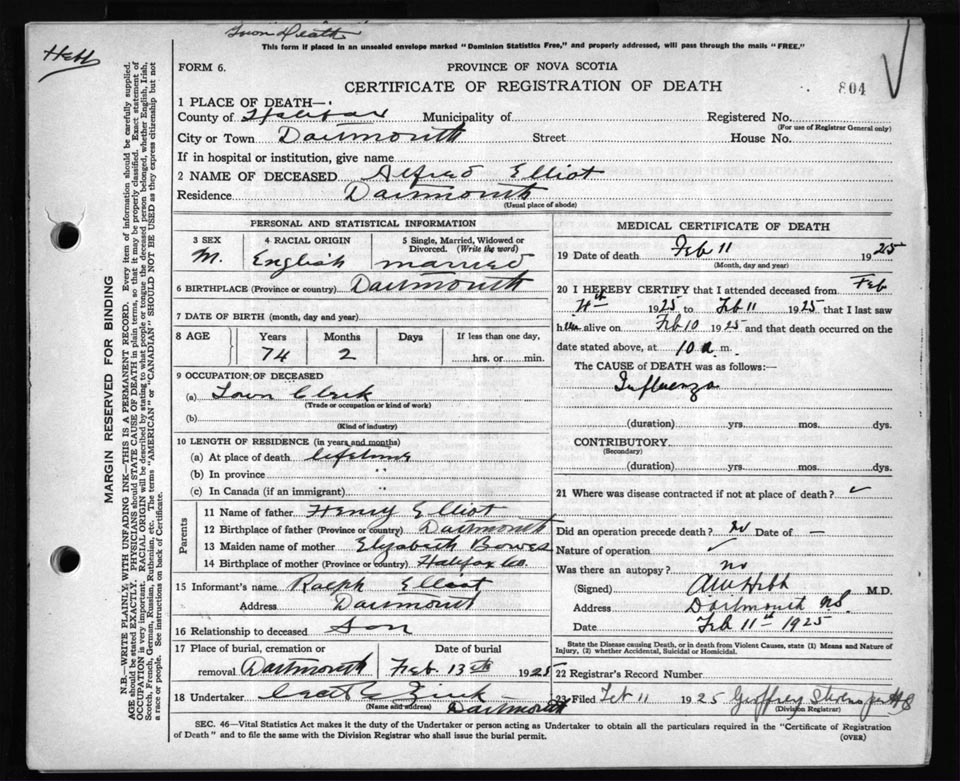 Town Death
Hebb
This form if placed in an unsealed envelope marked "Dominion Statistics Free," and properly addressed, will pass through the mails "FREE."
FORM 6.
PROVINCE OF NOVA SCOTIA
804
CERTIFICATE OF REGISTRATION OF DEATH
1 PLACE OF DEATH—
County of Halifax Municipality of Registered No.
(For use of Registrar General only)
City or Town Dartmouth Street House No.
If in hospital or institution, give name
2 NAME OF DECEASED Alfred Elliot
Residence Dartmouth
(Usual place of abode)
MARGIN RESERVED FOR BINDING
N.B.—WRITE PLAINLY, WITH UNFADING INK—THIS IS A PERMANENT RECORD. Every item of information should be carefully supplied.
AGE should be stated EXACTLY. PHYSICIANS should STATE CAUSE OF DEATH in plain terms, so that it may be properly classified. Exact statement of
OCCUPATION is very important. RACIAL ORIGIN will be described by stating to what people or tongue the deceased person belonged, whether English, Irish,
Scotch, French, German, Russian, Ruthenian, etc. The terms "AMERICAN" or "CANADIAN" SHOULD NOT BE USED as they express citizenship but not
a race or people. See instructions on back of Certificate.
PERSONAL AND STATISTICAL INFORMATION
3 SEX
M.
4 RACIAL ORIGIN
English
5 Single, Married, Widowed or
Divorced. (Write the word)
married
6 BIRTHPLACE (Province or country) Dartmouth
7 DATE OF BIRTH (month, day and year)
8 AGE
Years Months Days If less than one day,
74 2 hrs. or min.
9 OCCUPATION OF DECEASED
(a) Town Clerk
(Trade or occupation or kind of work)
(b)
(Kind of industry)
10 LENGTH OF RESIDENCE (in years and months)
(a) At place of death lifetime
(b) In province "
(c) In Canada (if an immigrant) "
Parents
11 Name of father Henry Elliot
12 Birthplace of father (Province or country) Dartmouth
13 Maiden name of mother Elizabeth Bowes
14 Birthplace of mother (Province or country) Halifax Co.
15 Informant's name Ralph Elliot
Address Dartmouth
16 Relationship to deceased Son
17 Place of burial, cremation or Date of burial
removal Dartmouth Feb. 13th 1925
18 Undertaker Zink
(Name and address) Dartmouth
MEDICAL CERTIFICATE OF DEATH
19 Date of death Feb 11 1925
(Month, day and year)
20 I HEREBY CERTIFY that I attended deceased from Feb
4th 1925 to Feb 11 1925 that I last saw
him alive on Feb 10 1925 and that death occurred on the
date stated above, at 10 a. m.
The CAUSE of DEATH was as follows:—
Influenza
(duration) yrs. mos. dys.
CONTRIBUTORY.
(Secondary)
(duration) yrs. mos. dys.
21 Where was disease contracted if not at place of death? ✓
Did an operation precede death? No Date of —
Nature of operation ✓
Was there an autopsy? no
(Signed) Hebb M.D.
Address Dartmouth N.S.
Date Feb 11th 1925
State the Disease causing Death, or in death from Violent Causes, state (1) Means and Nature of
Injury, (2) whether Accidental, Suicidal or Homicidal.
22 Registrar's Record Number
23 Filed Feb 11 1925 Geoffrey
(Division Registrar)
SEC. 46—Vital Statistics Act makes it the duty of the Undertaker or person acting as Undertaker to obtain all the particulars required in the "Certificate of Registration
of Death" and to file the same with the Division Registrar who shall issue the burial permit.
(OVER)